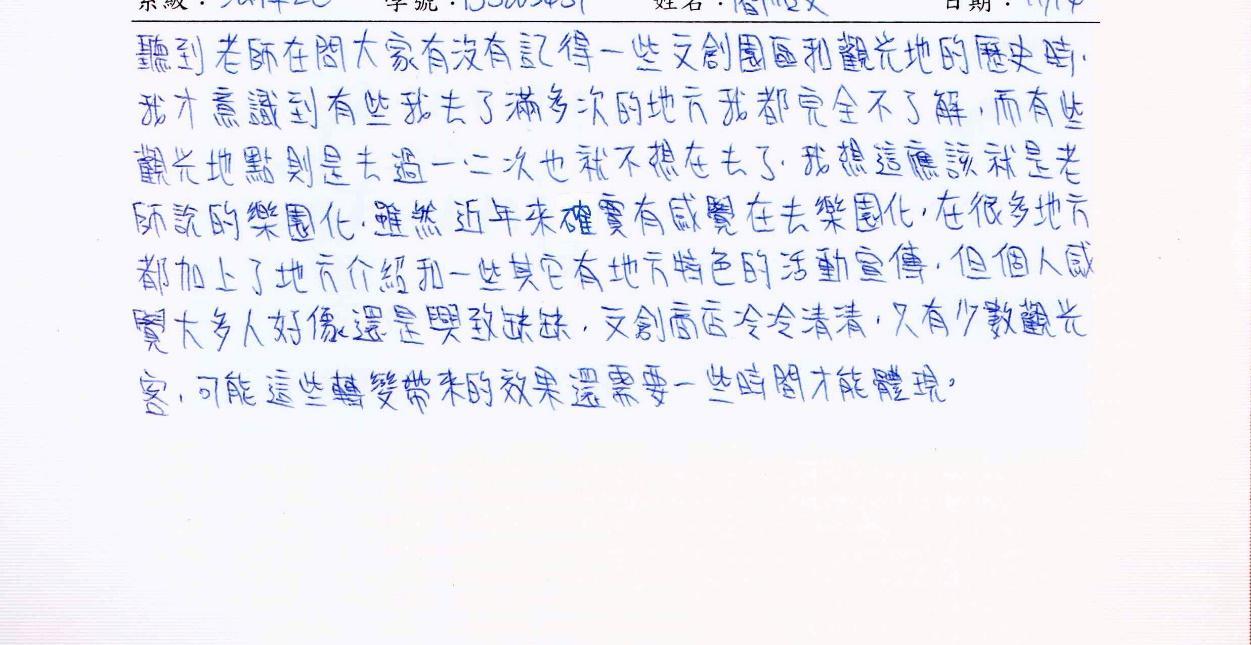 系級： 學號： 姓名： 日期：
聽到老師在問大家有沒有記得一些文創園區和觀光地的歷史時，
我才意識到有些我去了滿多次的地方我都完全不了解，而有些
觀光地點則是去過一、二次也就不想在去了，我想這應該就是老
師說的樂園化，雖然近年來確實有感覺在去樂園化，在很多地方
都加上了地方介紹和一些其它有地方特色的活動宣傳，但個人感
覺大多人好像還是興致缺缺，文創商店冷冷清清，只有少數觀光
客，可能這些轉變帶來的效果還需要一些時間才能體現。